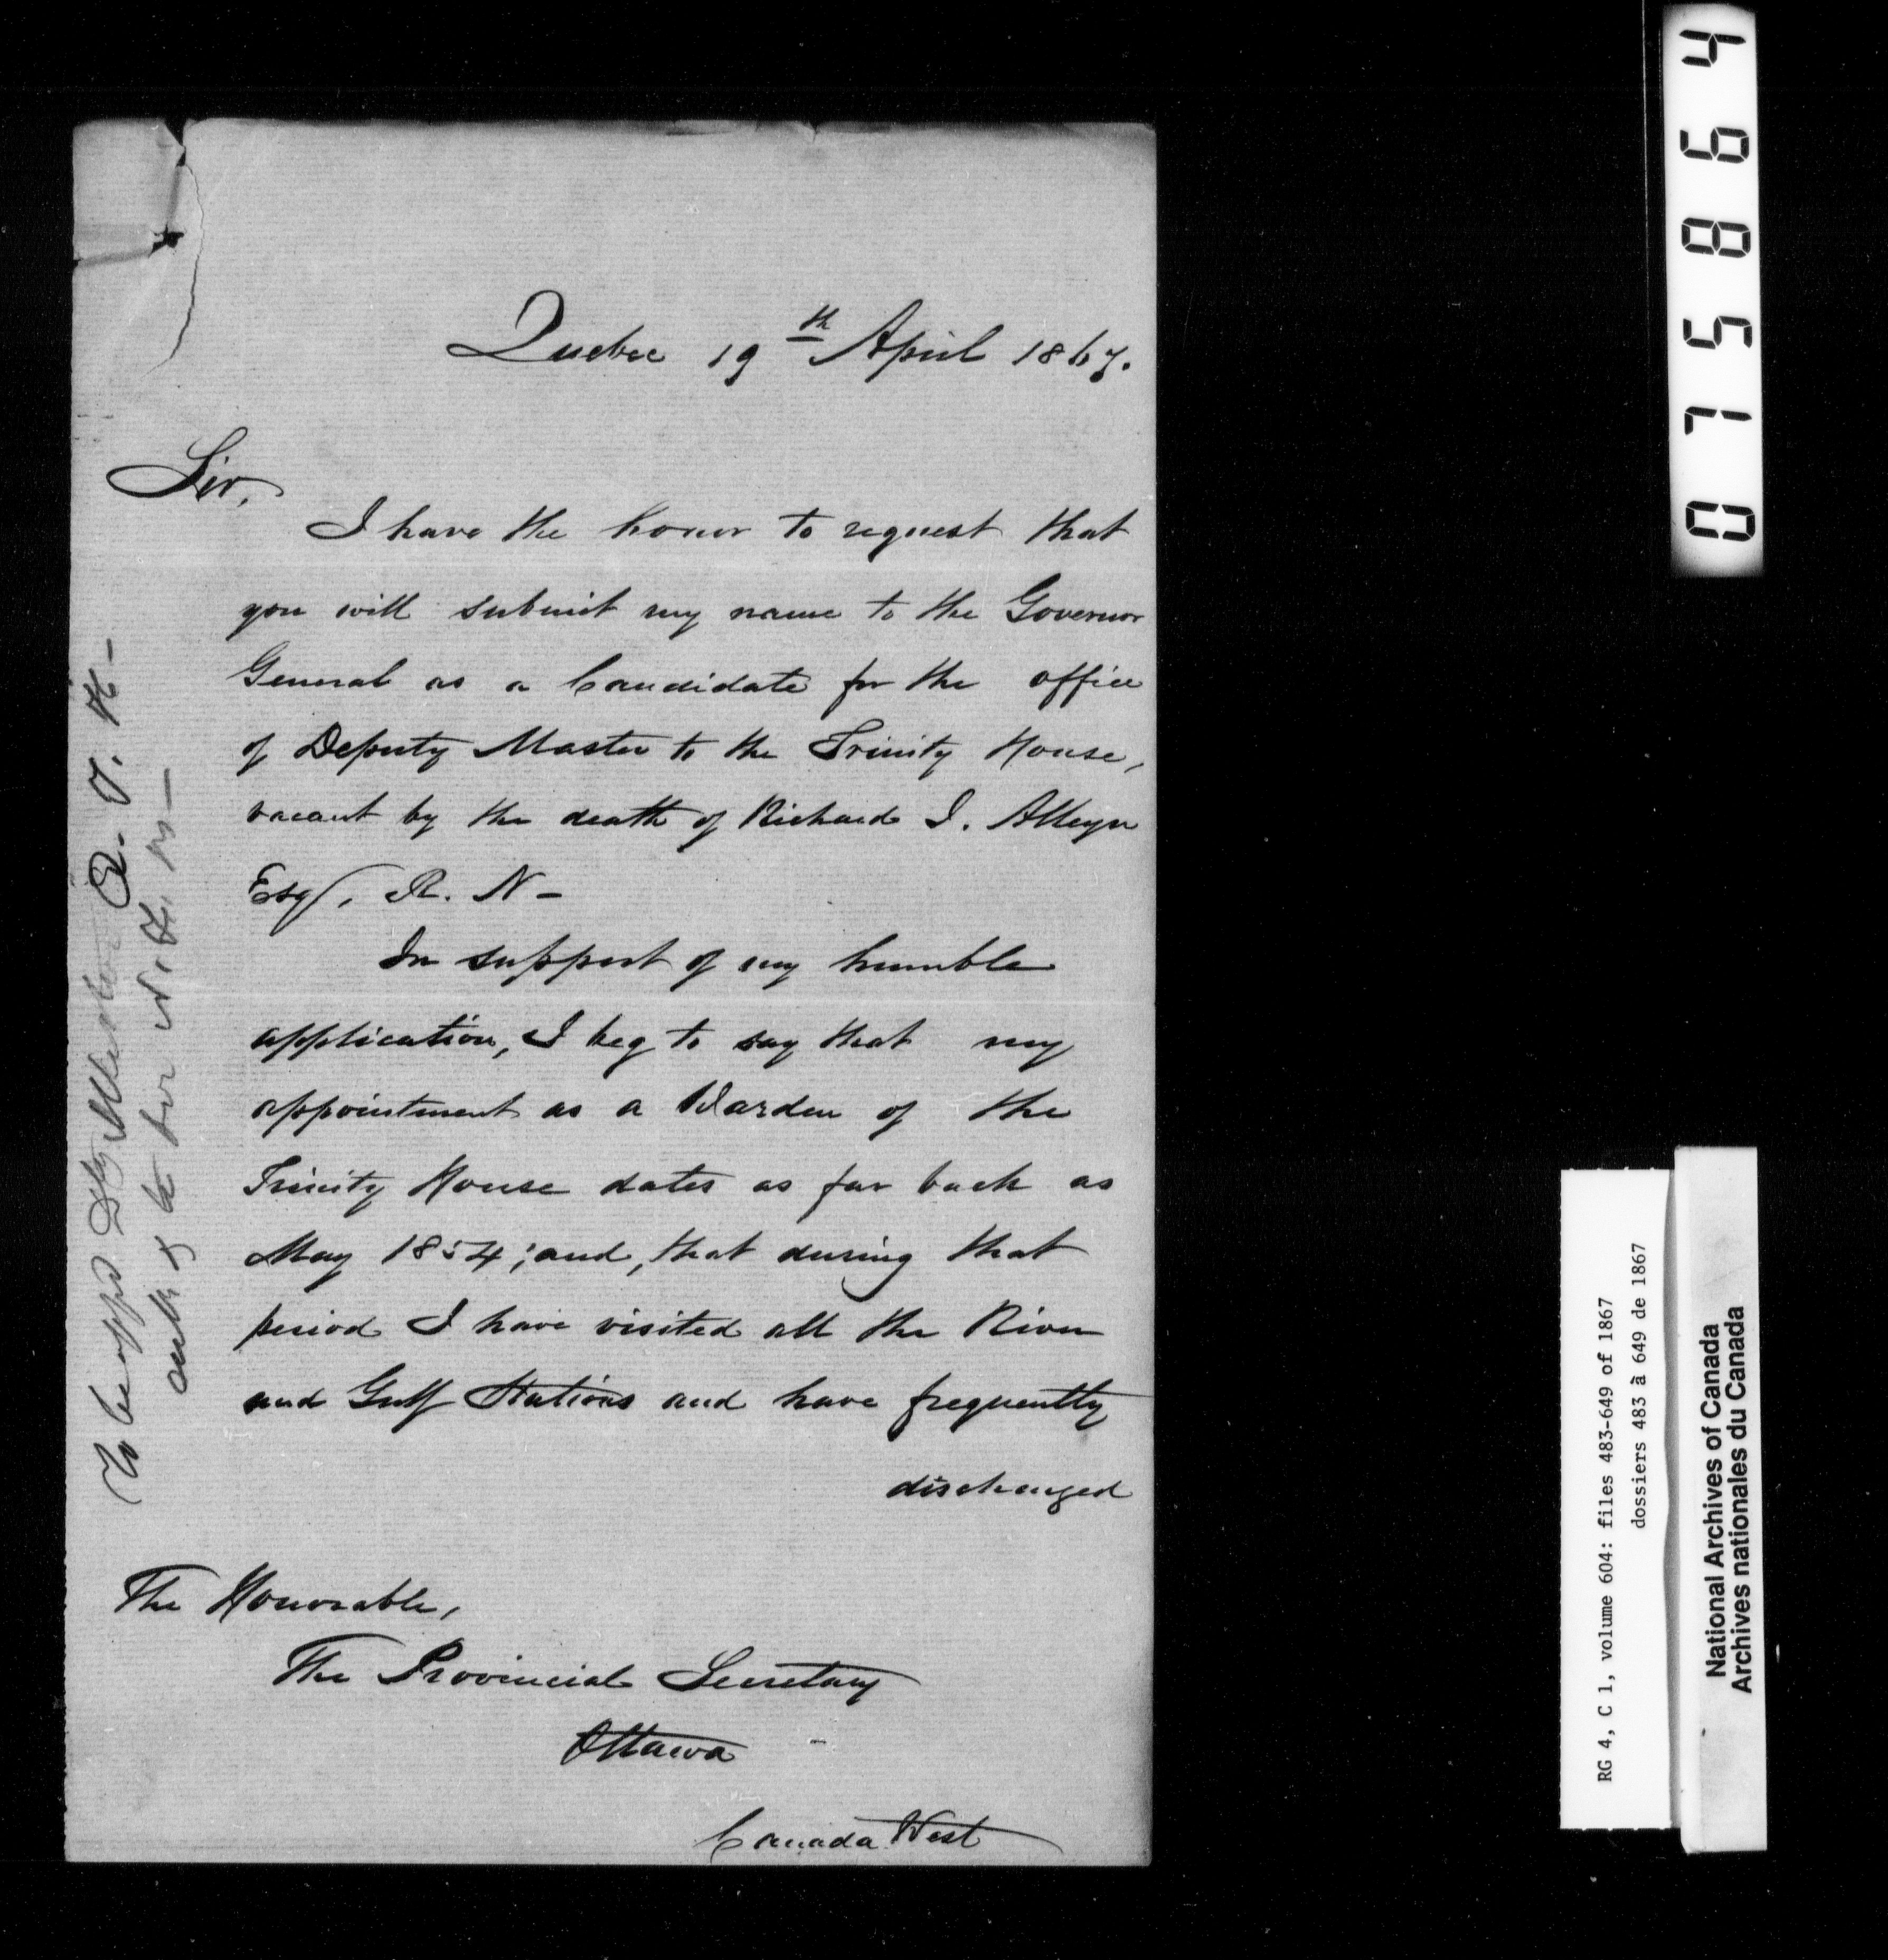 Quebec 19th April 1867.
Sir,
I have the honor to request that
you will submit my name to the Governor
General as a Candidate for the office
of Deputy Master to the Trinity House,
vacant by the death of Richard I. Alleyn
Esqr, R. N-
In support of my humble
application, I beg to say that my
appointment as a Warden of the
Trinity House dates as far back as
May 1854; and, that during that
period I have visited all the River
and Gulf Stations and have frequently
discharged
The Honorable,
The Provincial Secretary
Ottawa
Canada West
To be appd Dy Master Q. T. H-
075864
RG 4, C 1, volume 604: files 483-649 of 1867
dossiers 483 à 649 de 1867
National Archives of Canada
Archives nationales du Canada